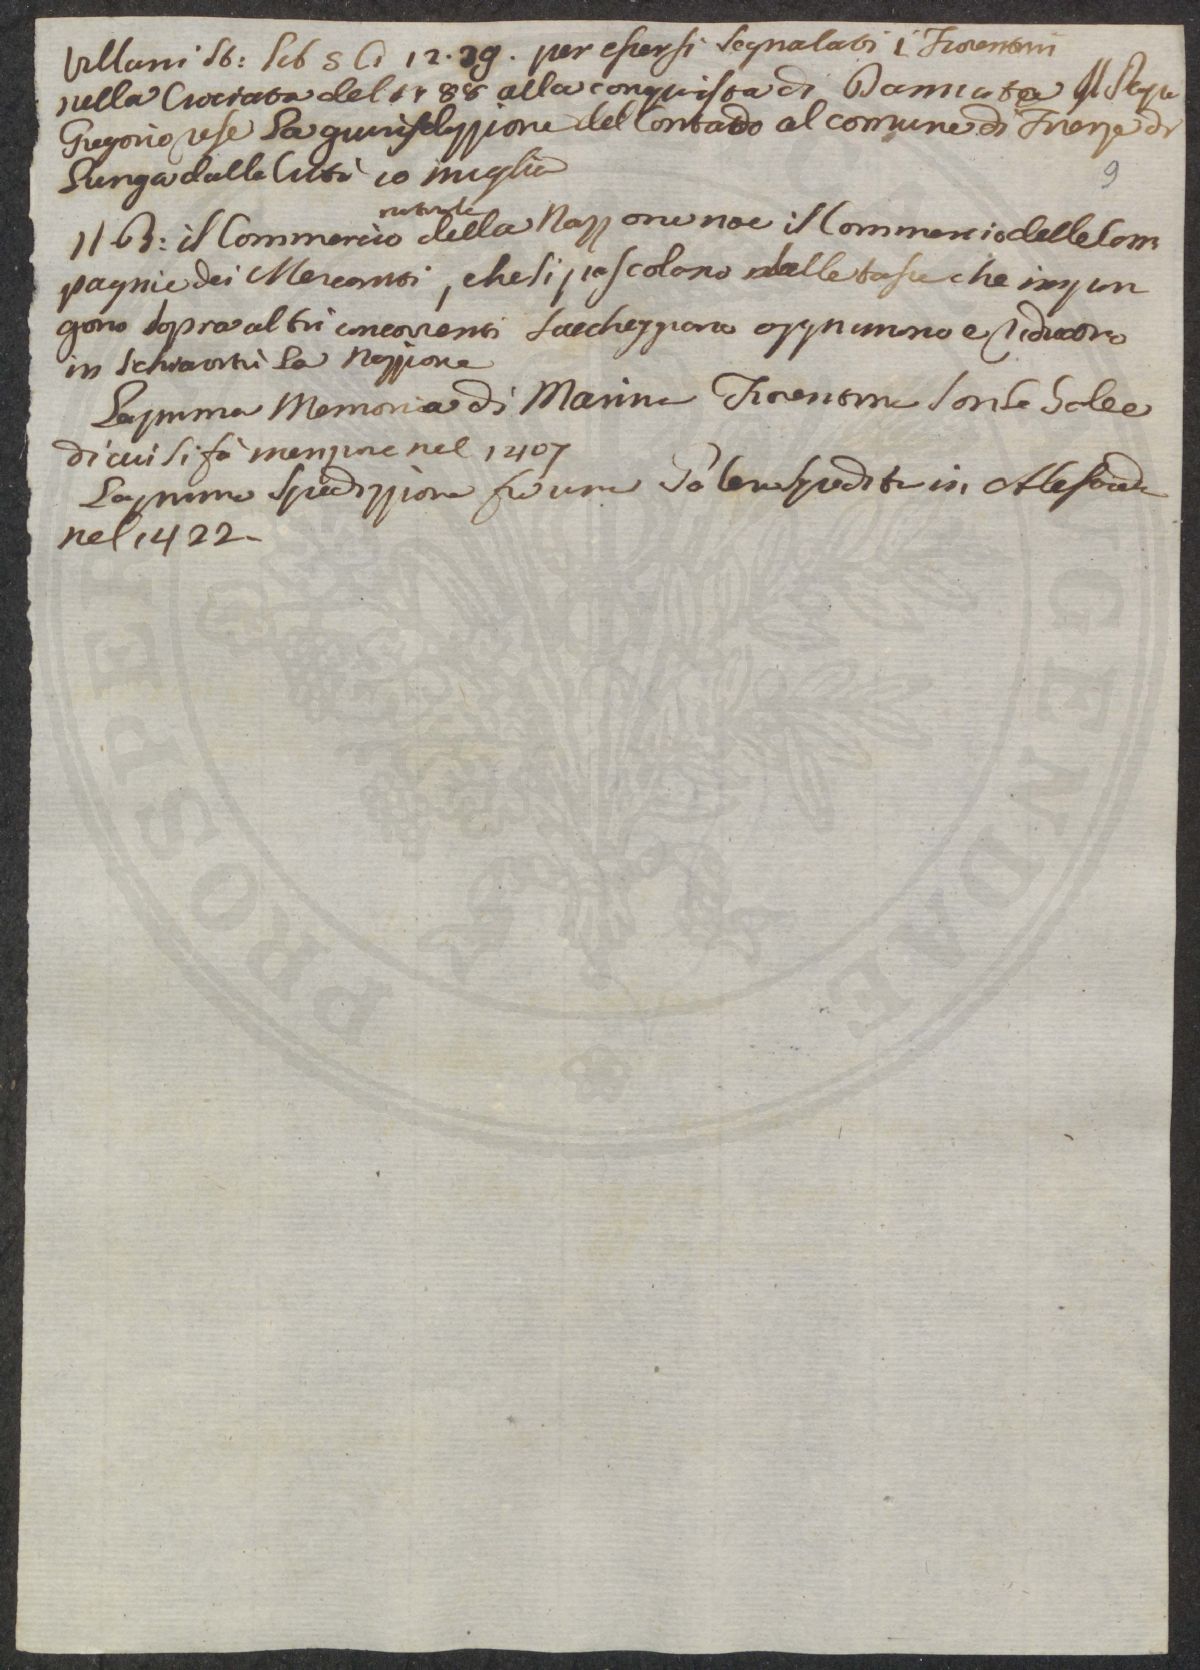 Villani St: Lib 5 C. 12. 29. per essersi segnalati i Fiorentini
nella Crociata del 1188 alla conquista di Damiata Il Papa
Gregorio rese la giurisdizzione del Contado al comune di Firenze di
lunga dalla Città 10 miglia
9
naturale
NB: il Commercio della Nazzione noe il Commercio delle Com
pagnie dei Mercanti, che si pascolano delle tasse che impon
gono sopra altri concorrenti saccheggiano opprimono e riducono
in schiavitù la Nazzione
La prima Memoria di Marina Fiorentina son le Galee
di cui si fà menzione nel 1407
La prima Spedizzione fù una Galera spedita in Alessand
nel 1422
PROSPER
UGENDAE